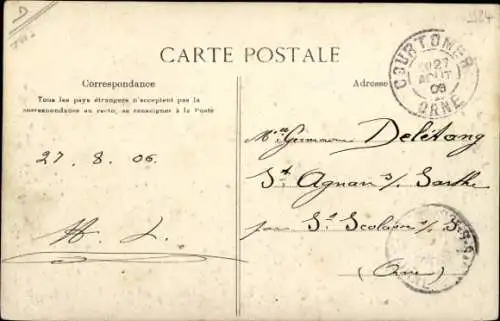 CARTE POSTALE
Correspondance
Tous les pays étrangers n'acceptent pas la
correspondance au recto, se renseigner à la Poste
27. 8. 06.
H. L.
Adresse
COURTOMER
27
AOUT
06
ORNE
Germain Delétang
St Agnan s/ Sarthe
par St Scolasse s/ S
(Orne)